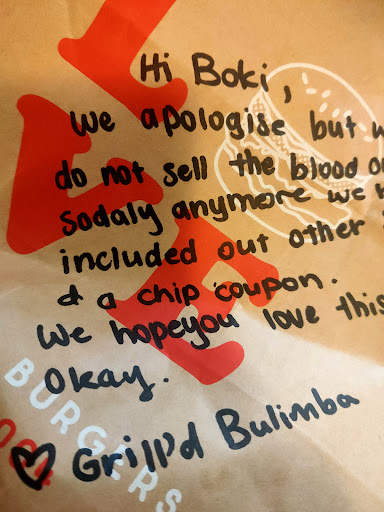 Hi Boki,
We apologise but w
do not sell the blood o
Sodaly anymore we h
included out other
& a chip coupon.
We hopeyou love this
Okay.
♡ Grill'd Bulimba
BURGERS